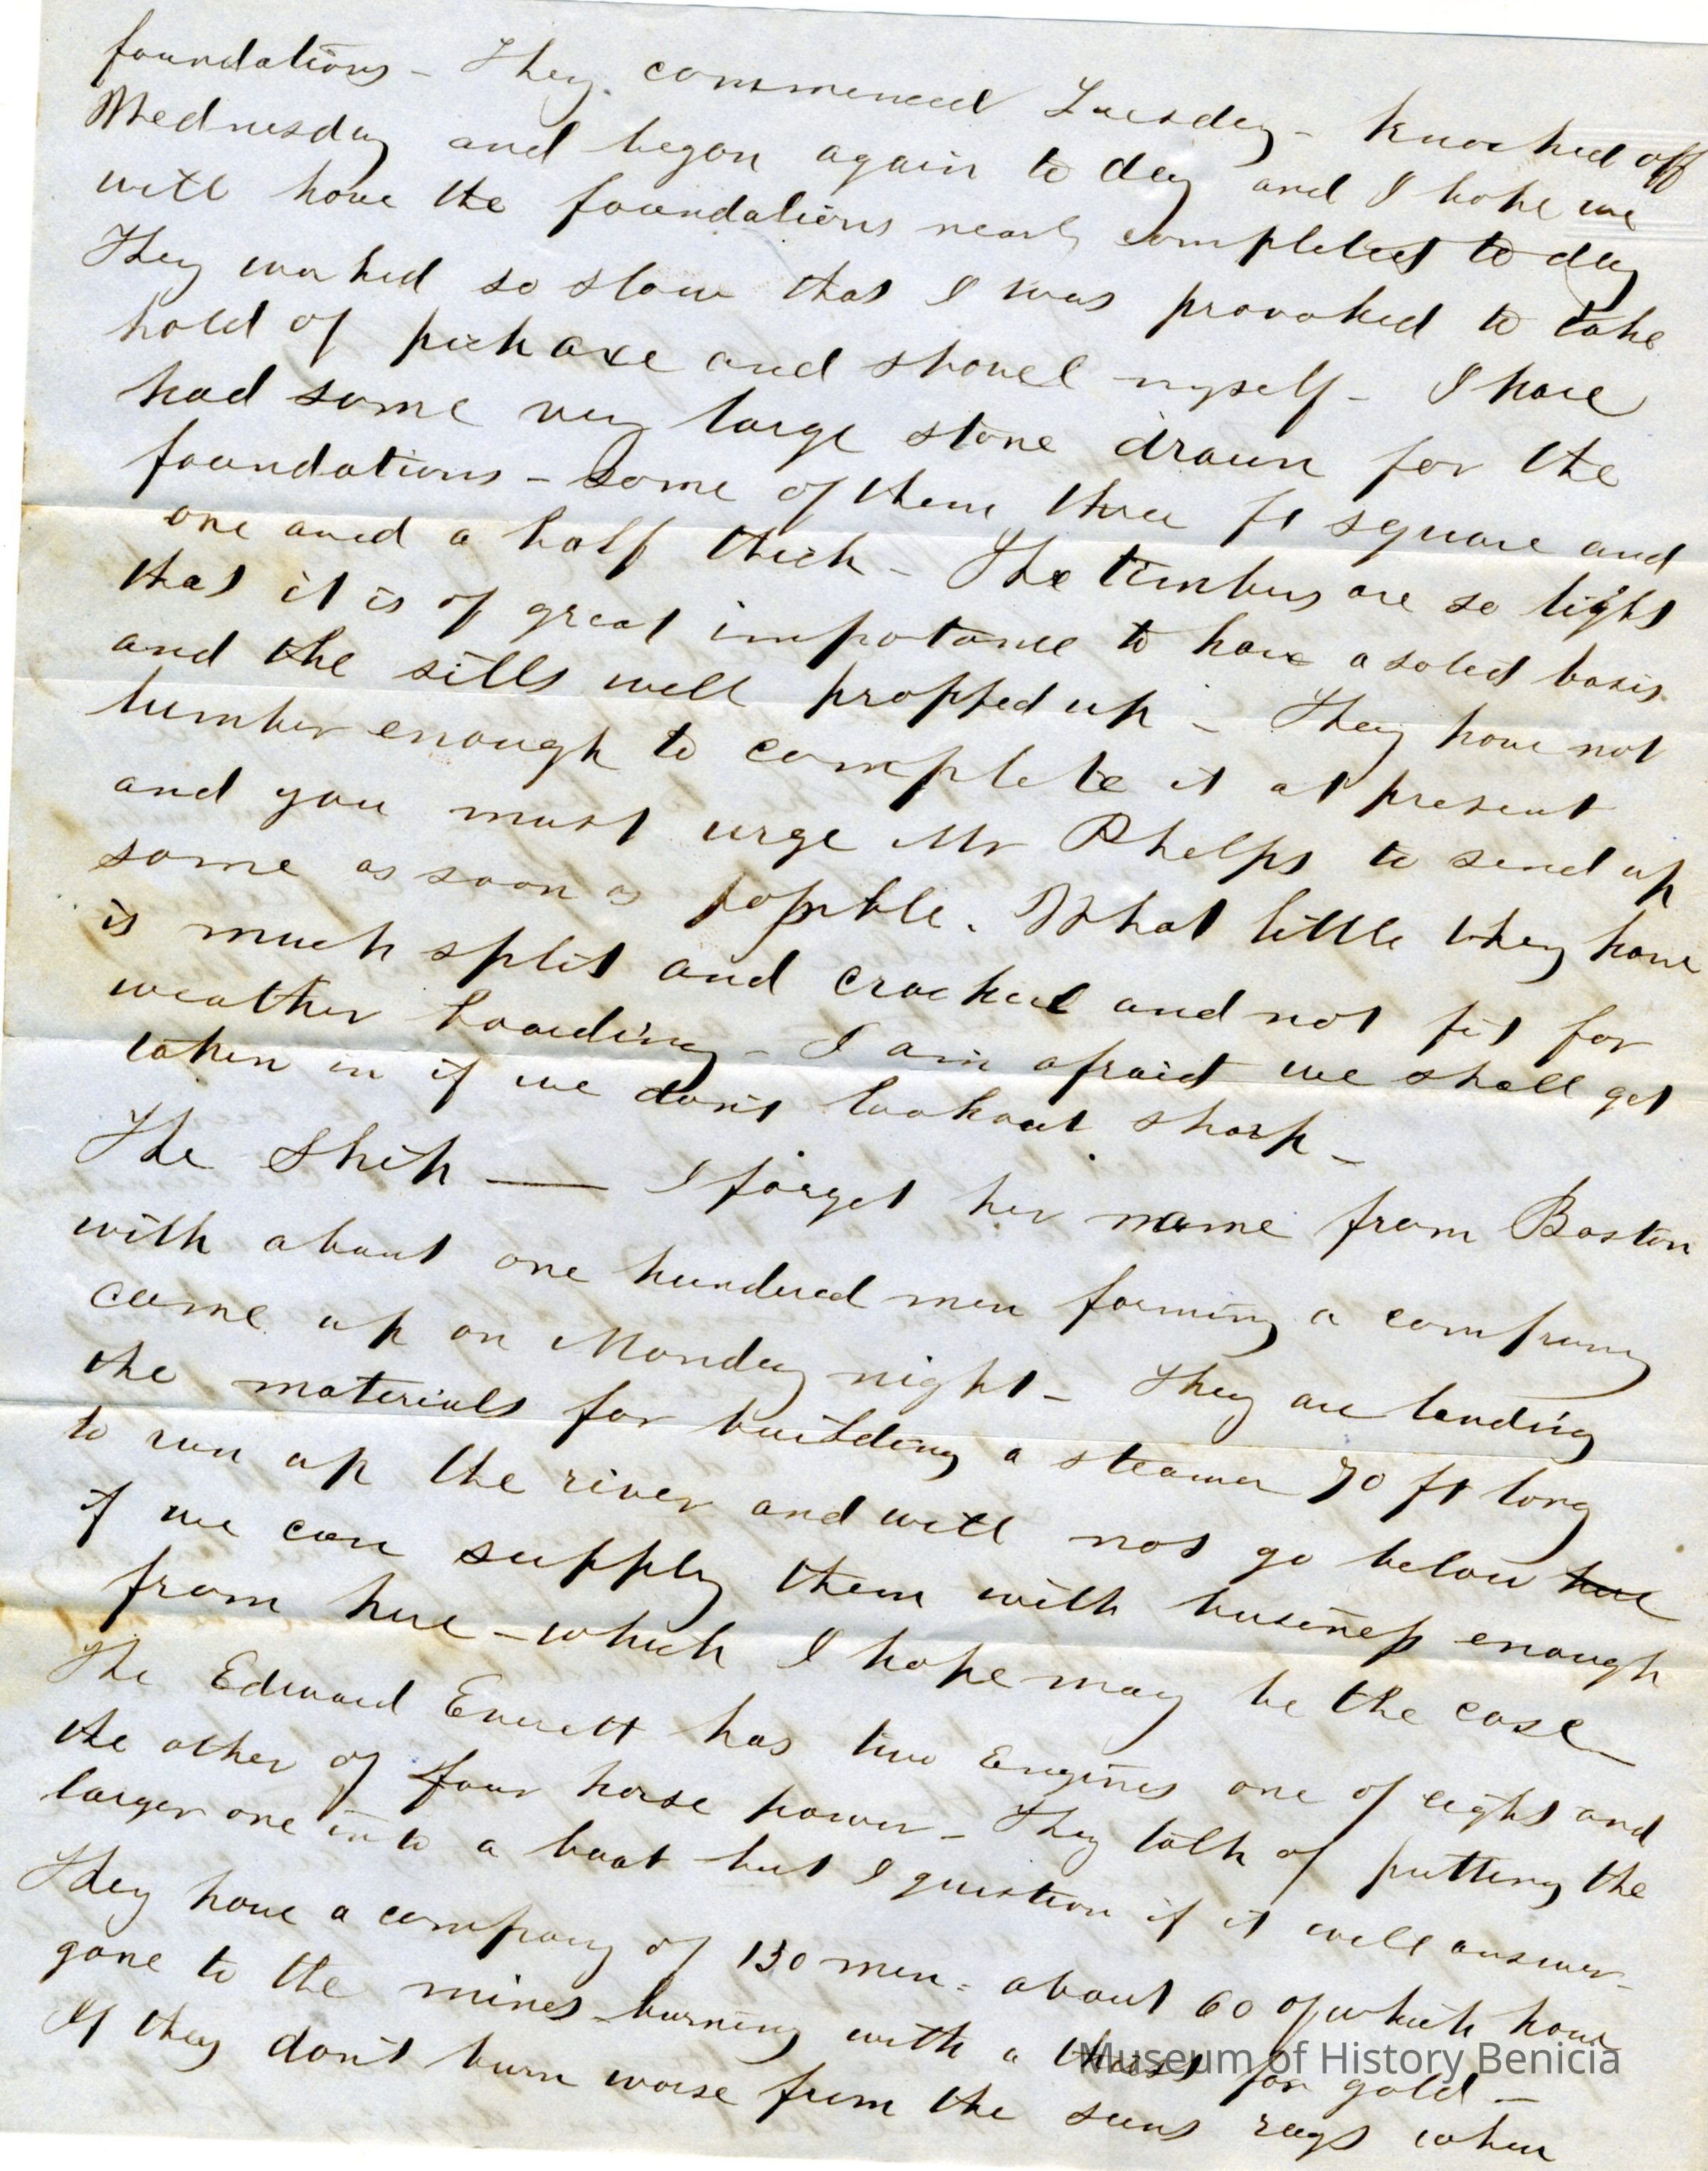 foundations – They commenced Tuesday – knocked off
Wednesday and began again to day and I hope we
will have the foundations nearly completed to day
They worked so slow that I was provoked to take
hold of pickaxe and shovel myself – I have
had some very large stone drawn for the
foundations – some of them three ft square and
one and a half thick – The timbers are so light
that it is of great impotance to have a solid basis
and the sills well propped up – They have not
lumber enough to complete it at present
and you must urge Mr Phelps to send up
some as soon as possible. What little they have
is much split and cracked and not fit for
weather boarding – I am afraid we shall get
taken in if we don't lookout sharp –
The Ship —— I forget her name from Boston
with about one hundred men forming a company
came up on Monday night – They are landing
the materials for building a steamer 70 ft long
to run up the river and will not go below here
if we can supply them with business enough
from here – which I hope may be the case
The Edward Everett has two Engines one of eight and
the other of four horse power – They talk of putting the
larger one into a boat but I question if it will answer –
They have a company of 130 men = about 60 of which have
gone to the mines – burning with a thirst for gold –
If they don't burn worse from the suns rays when
Museum of History Benicia